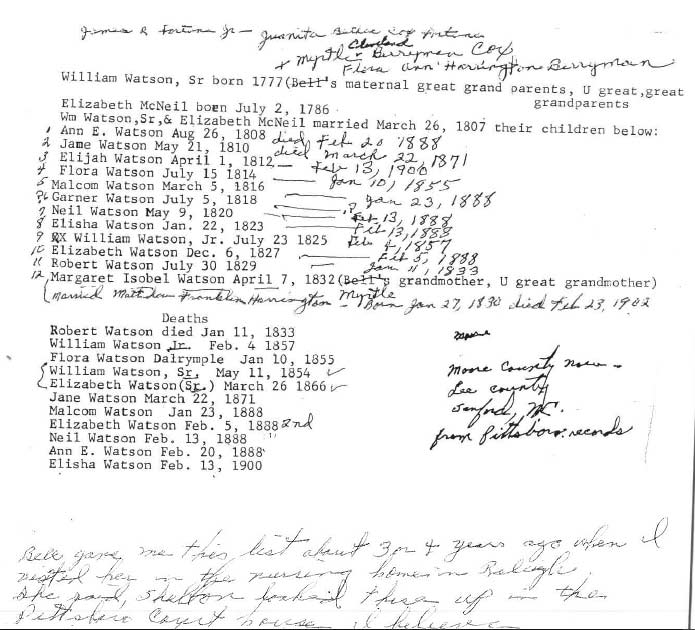 James R Fortune Jr — Juanita Bethea Cox Fortune
Cleveland
+ Myrtle Berryman Cox
Flora Ann Harrington Berryman
William Watson, Sr born 1777(Bell's maternal great grand parents, U great,great
grandparents
Elizabeth McNeil born July 2, 1786.
Wm Watson,Sr,& Elizabeth McNeil married March 26, 1807 their children below:
1 Ann E. Watson Aug 26, 1808 died Feb 20 1888
2 Jane Watson May 21, 1810 died March 22, 1871
3 Elijah Watson April 1, 1812— Feb 13, 1900
4 Flora Watson July 15 1814 — Jan 10, 1855
5 Malcom Watson March 5, 1816
6 Garner Watson July 5, 1818 — Jan 23, 1888
7 Neil Watson May 9, 1820 — ? Feb 13, 1888
8 Elisha Watson Jan. 22, 1823 — Feb 13, 1888
9 XX William Watson, Jr. July 23 1825 Feb 4, 1857
10 Elizabeth Watson Dec. 6, 1827 — Feb 5, 1888
11 Robert Watson July 30 1829 — Jan 11, 1833
12 Margaret Isobel Watson April 7, 1832(Bell's grandmother, U great grandmother)
Myrtle
(married Matthew Franklin Harrington — Born Jan 27, 1830 died Feb 23, 1902
Deaths
Robert Watson died Jan 11, 1833
William Watson Jr. Feb. 4 1857
Flora Watson Dalrymple Jan 10, 1855
William Watson, Sr. May 11, 1854 ✓
Elizabeth Watson(Sr.) March 26 1866 ✓
Jane Watson March 22, 1871
Malcom Watson Jan 23, 1888
Elizabeth Watson Feb. 5, 1888 2nd
Neil Watson Feb. 13, 1888 "
Ann E. Watson Feb. 20, 1888
Elisha Watson Feb. 13, 1900
Moore County now —
Lee county
Sanford, NC.
from Pittsboro records
Bell gave me this list about 3 or 4 years ago when I
visited her in the nursing home in Raleigh.
She said, Shelton looked these up in the
Pittsboro Court house I believe